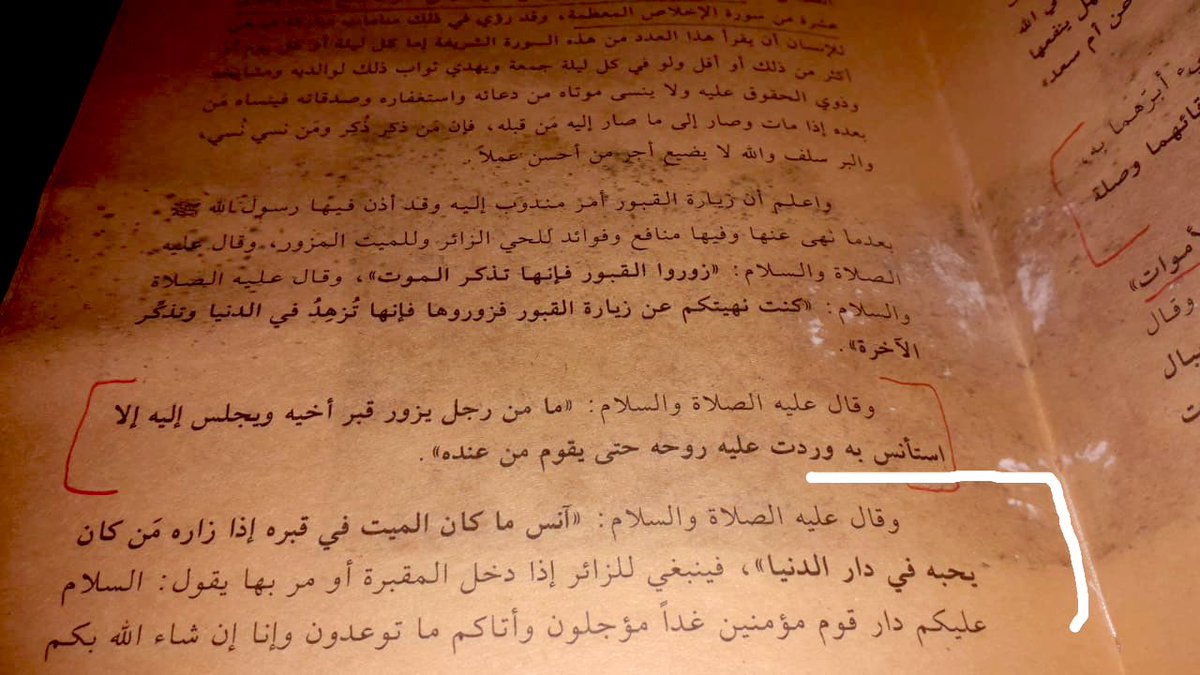 عشرة من سورة الإخلاص المعظمة، وقد رؤي في ذلك منامات
للإنسان أن يقرأ هذا العدد من هذه السورة الشريفة إما كل ليلة أو كل يوم أو
أكثر من ذلك أو أقل ولو في كل ليلة جمعة ويهدي ثواب ذلك لوالديه ومشايخه
وذوي الحقوق عليه ولا ينسى موتاه من دعائه واستغفاره وصدقاته فينساه مَن
بعده إذا مات وصار إلى ما صار إليه مَن قبله، فإن مَن ذكر ذُكر ومَن نسي نُسي،
والبر سلف والله لا يضيع أجر من أحسن عملاً.
واعلم أن زيارة القبور أمر مندوب إليه وقد أذن فيها رسول الله ﷺ
بعدما نهى عنها وفيها منافع وفوائد للحي الزائر وللميت المزور، وقال عليه
الصلاة والسلام: «زوروا القبور فإنها تذكر الموت»، وقال عليه الصلاة
والسلام: «كنت نهيتكم عن زيارة القبور فزوروها فإنها تُزهِدُ في الدنيا وتذكّر
الآخرة».
وقال عليه الصلاة والسلام: «ما من رجل يزور قبر أخيه ويجلس إليه إلا
استأنس به وردت عليه روحه حتى يقوم من عنده».
وقال عليه الصلاة والسلام: «آنس ما كان الميت في قبره إذا زاره مَن كان
يحبه في دار الدنيا»، فينبغي للزائر إذا دخل المقبرة أو مر بها يقول: السلام
عليكم دار قوم مؤمنين غداً مؤجلون وأتاكم ما توعدون وإنا إن شاء الله بكم
ي الله
ل ينفعها
ن أم سعد»
أبرّهما به،
ائهما وصلة
أموات»
وقال
بال
ت